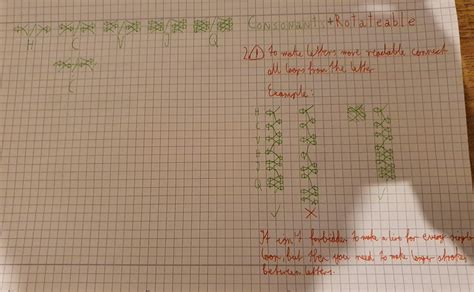 H C V J Q
Consonants + Rotateable
2. ① To make letters more readable connect
all loops from the letter
Example:
H
C
V
Q
✓ X ✓
It isn't forbidden to make a line for every
loop, but then you need to make longer strokes
between letters.